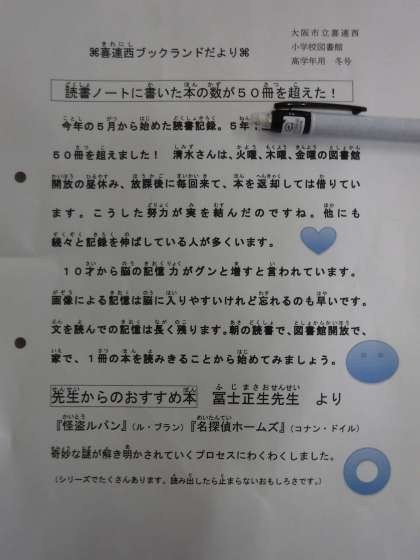 大阪市立喜連西
小学校図書館
高学年用　冬号
⌘喜連西ブックランドだより⌘
読書ノートに書いた本の数が５０冊を超えた！
今年の５月から始めた読書記録。５年
５０冊を超えました！　清水さんは、火曜、木曜、金曜の図書館
開放の昼休み、放課後に毎回来て、本を返却しては借りてい
ます。こうした努力が実を結んだのですね。他にも
続々と記録を伸ばしている人が多くいます。
１０才から脳の記憶力がグンと増すと言われています。
画像による記憶は脳に入りやすいけれど忘れるのも早いです。
文を読んでの記憶は長く残ります。朝の読書で、図書館開放で、
家で、１冊の本を読みきることから始めてみましょう。
先生からのおすすめ本　冨士正生先生　より
『怪盗ルパン』（ル・ブラン）『名探偵ホームズ』（コナン・ドイル）
奇妙な謎が解き明かされていくプロセスにわくわくしました。
（シリーズでたくさんあります。読み出したら止まらないおもしろさです。）